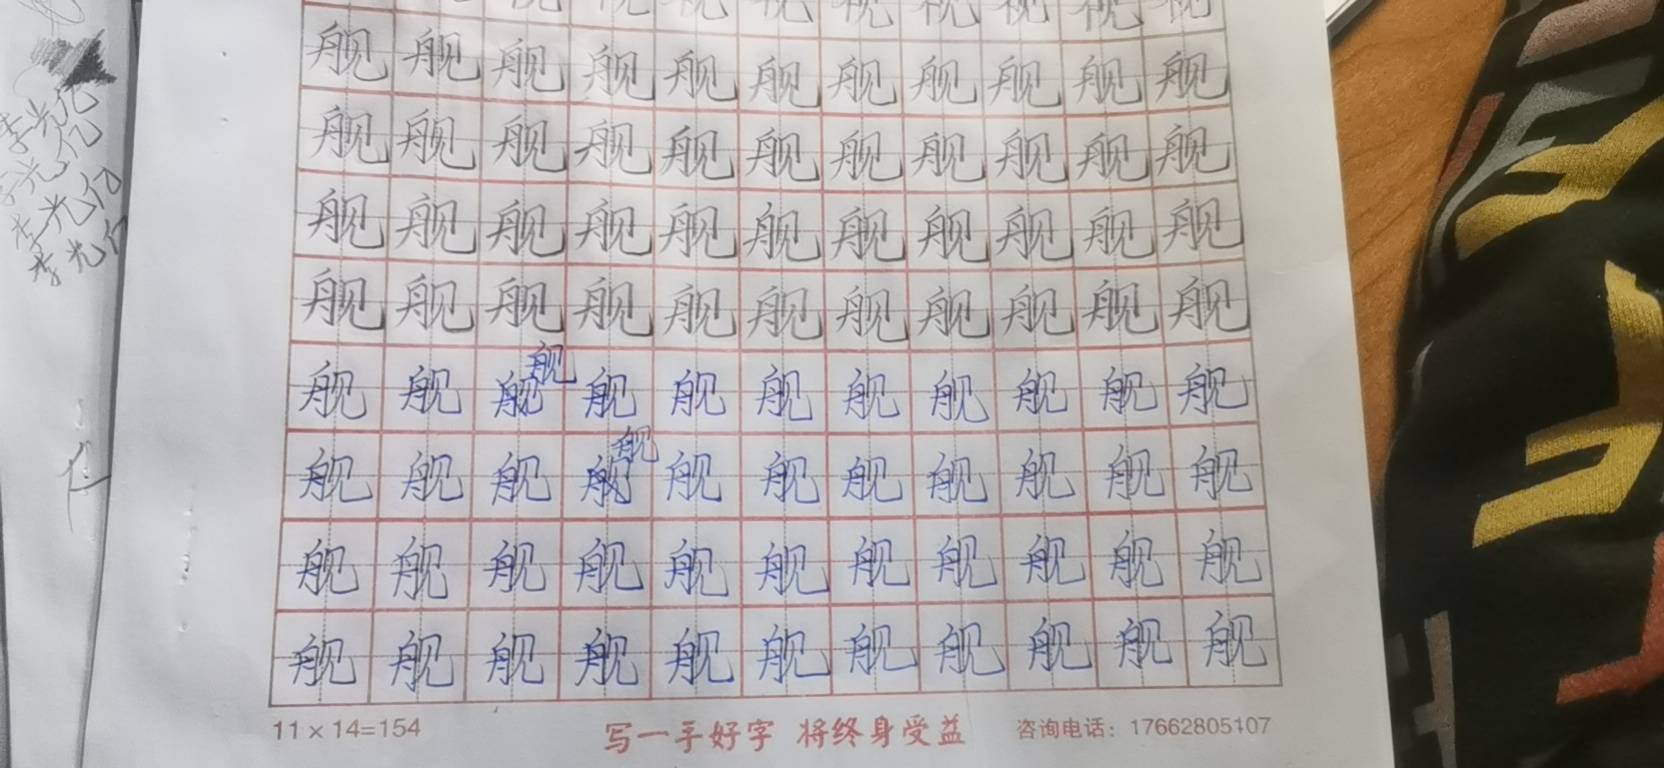 视 视 视 视 视 视 视 视
舰 舰 舰 舰 舰 舰 舰 舰 舰 舰 舰
舰 舰 舰 舰 舰 舰 舰 舰 舰 舰 舰
舰 舰 舰 舰 舰 舰 舰 舰 舰 舰 舰
舰 舰 舰 舰 舰 舰 舰 舰 舰 舰 舰
舰
舰 舰 舰 舰 舰 舰 舰 舰 舰 舰 舰
舰
舰 舰 舰 舰 舰 舰 舰 舰 舰 舰 舰
舰 舰 舰 舰 舰 舰 舰 舰 舰 舰 舰
舰 舰 舰 舰 舰 舰 舰 舰 舰 舰 舰
11×14=154 写一手好字 将终身受益 咨询电话：17662805107